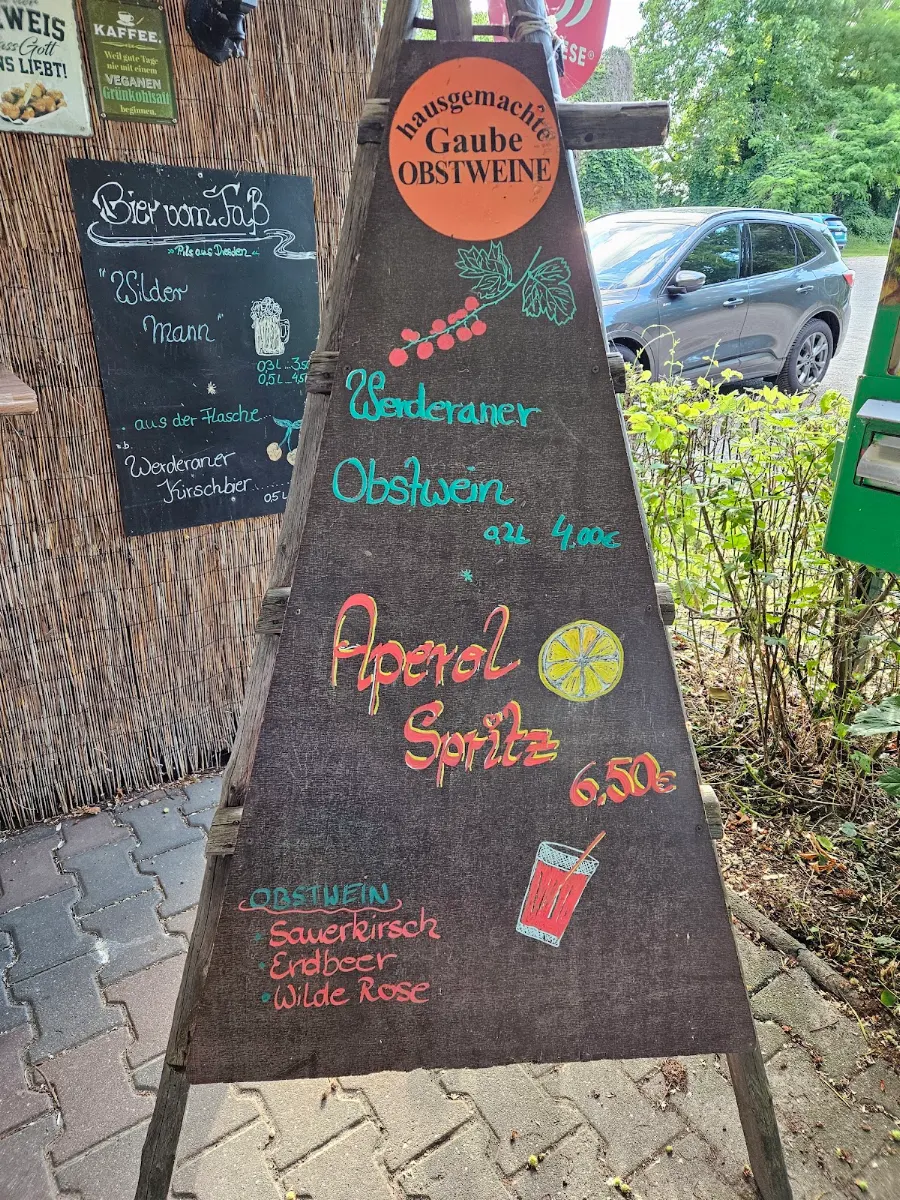 WEIS
ass Gott
NS LIEBT!
KAFFEE.
Weil gute Tage
nie mit einem
VEGANEN
Grünkohlsaft
beginnen.
Bier vom Faß
Pils aus Dresden
"Wilder
Mann"
0,3L...3,50
0,5L..4,5
*
aus der Flasche
z.b.
Werderaner
Kirschbier....
0,5L
hausgemachte
Gaube
OBSTWEINE
Werderaner
Obstwein
0,2L 4.00€
*
Aperol
Spritz
6,50€
OBSTWEIN
• Sauerkirsch
• Erdbeer
• Wilde Rose
ESE®